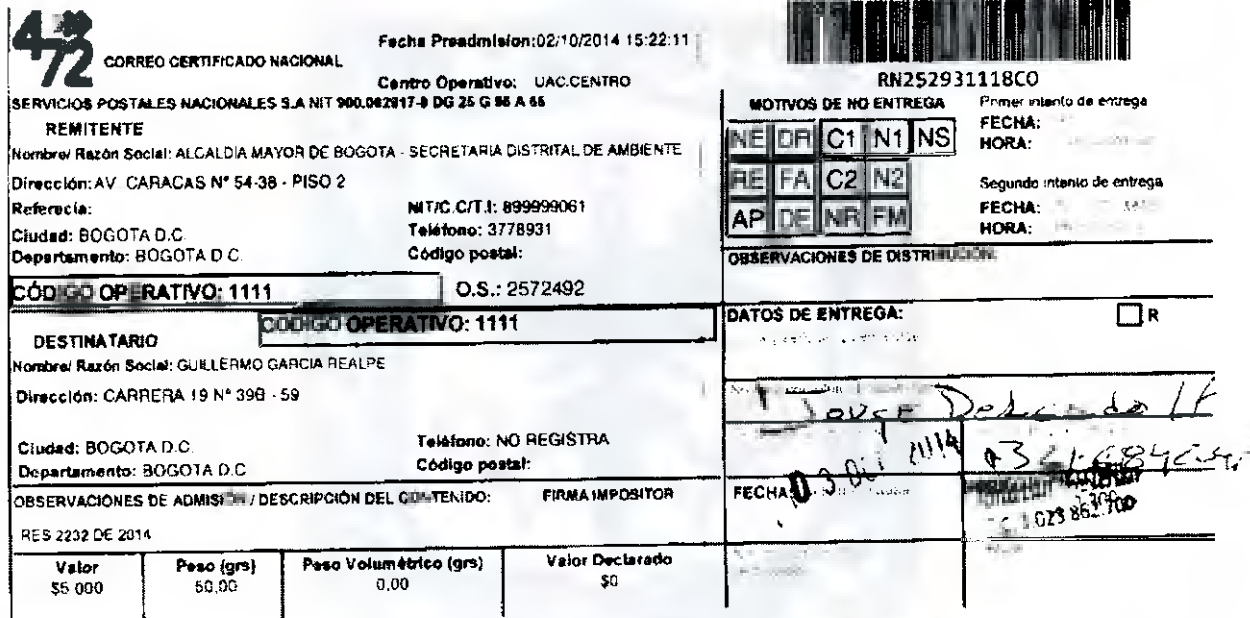 472
CORREO CERTIFICADO NACIONAL
Fecha Preadmision:02/10/2014 15:22:11
Centro Operativo: UAC.CENTRO
SERVICIOS POSTALES NACIONALES S.A NIT 900.062917-9 DG 25 G 95 A 55
REMITENTE
Nombre/ Razón Social: ALCALDIA MAYOR DE BOGOTA - SECRETARIA DISTRITAL DE AMBIENTE
Dirección: AV. CARACAS N° 54-38 - PISO 2
Referecia:
NIT/C.C/T.I: 899999061
Ciudad: BOGOTA D.C.
Teléfono: 3778931
Departamento: BOGOTA D.C.
Código postal:
CÓDIGO OPERATIVO: 1111
O.S.: 2572492
CODIGO OPERATIVO: 1111
DESTINATARIO
Nombre/ Razón Social: GUILLERMO GARCIA REALPE
Dirección: CARRERA 19 N° 39B - 59
Ciudad: BOGOTA D.C.
Teléfono: NO REGISTRA
Departamento: BOGOTA D.C
Código postal:
OBSERVACIONES DE ADMISIÓN / DESCRIPCIÓN DEL CONTENIDO:
FIRMA IMPOSITOR
RES 2232 DE 2014
Valor
$5 000
Peso (grs)
50,00
Peso Volumétrico (grs)
0,00
Valor Declarado
$0
RN252931118CO
MOTIVOS DE NO ENTREGA
NE DR C1 N1 NS
RE FA C2 N2
AP DE NR FM
Primer intento de entrega
FECHA:
HORA:
Segundo intento de entrega
FECHA:
HORA:
OBSERVACIONES DE DISTRIBUCIÓN:
DATOS DE ENTREGA:
R
FECHA
03 OCT 2014
1.023 862.700